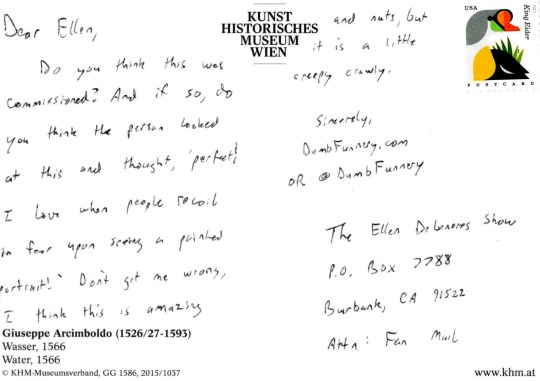 Dear Ellen,
Do you think this was
commissioned? And if so, do
you think the person looked
at this and thought, 'perfect!
I love when people recoil
in fear upon seeing a painted
portrait!' Don't get me wrong,
I think this is amazing
Giuseppe Arcimboldo (1526/27-1593)
Wasser, 1566
Water, 1566
© KHM-Museumsverband, GG 1586, 2015/1037
KUNST
HISTORISCHES
MUSEUM
WIEN
and nuts, but
it is a little
creepy crawly.
Sincerely,
DumbFunnery.com
OR @DumbFunnery
USA
King Eider
POSTCARD
The Ellen DeGeneres Show
P.O. Box 7788
Burbank, CA 91522
Attn: Fan Mail
www.khm.at